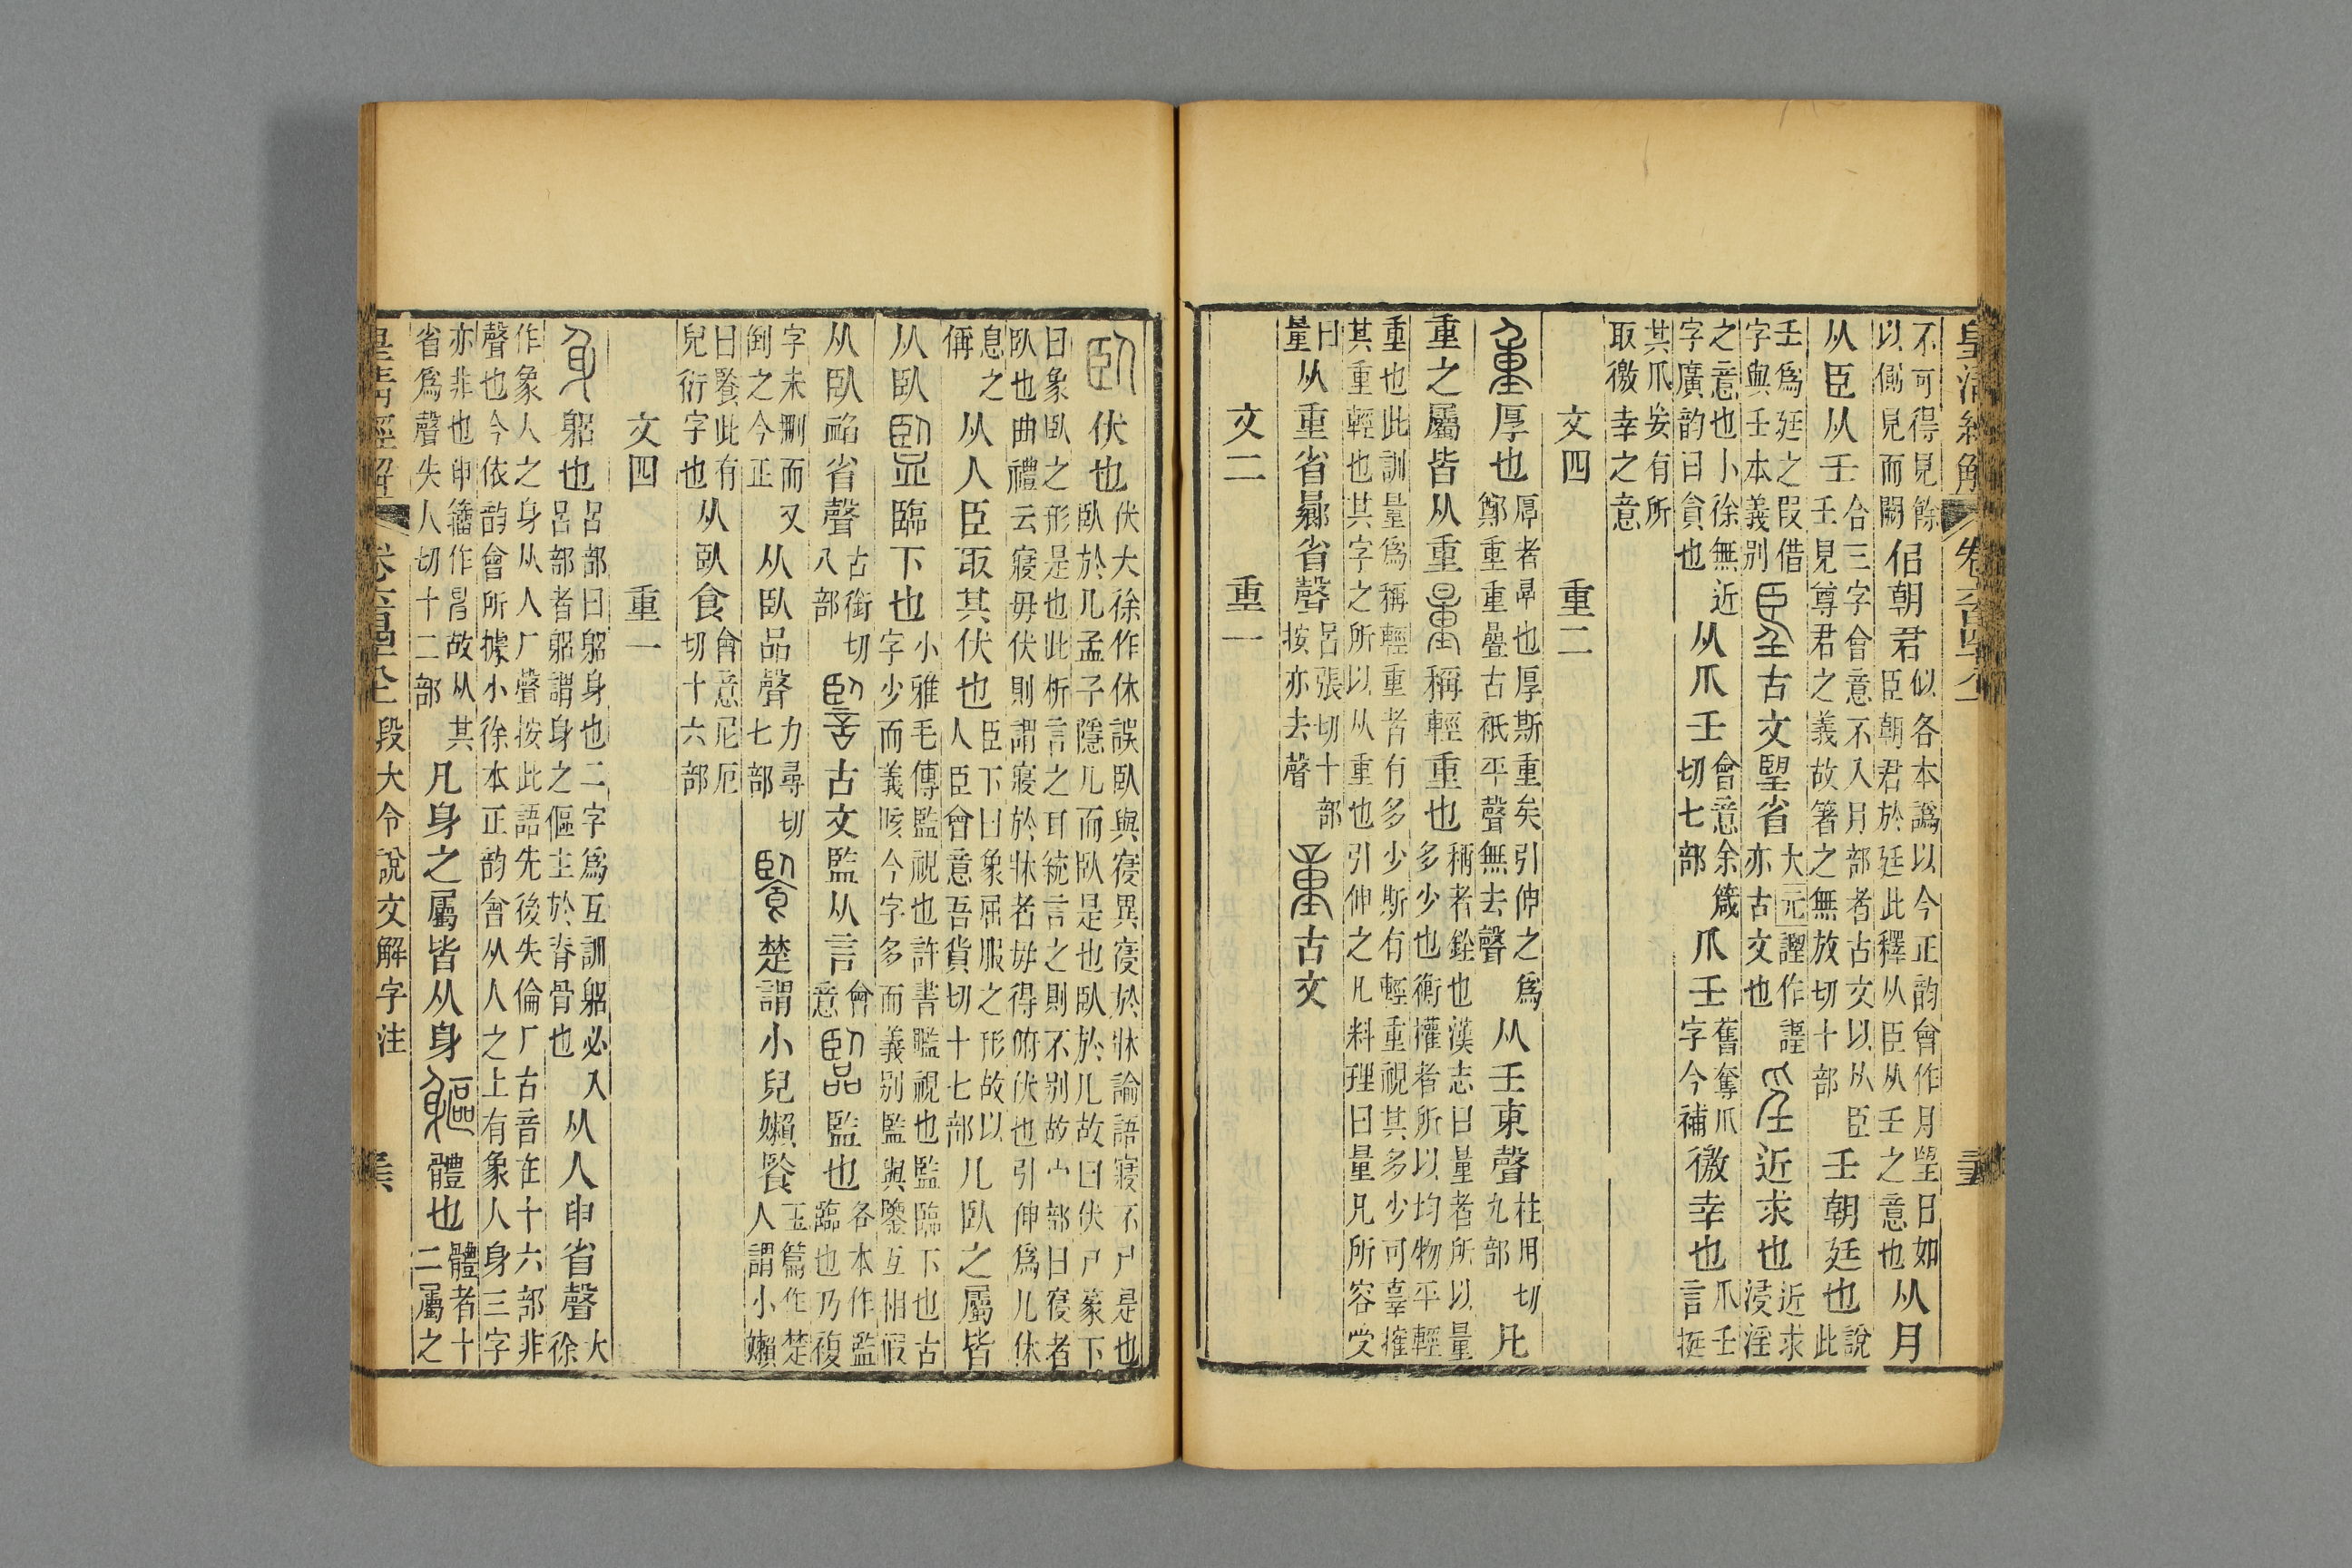 皇清經解
不可得見餘
以儩見而闕
佀朝君
似各本譌以今正韵會作月朢日如
臣朝君於廷此釋从臣从壬之意也
从月
从臣从壬
合三字會意不入月部者古文以从臣
壬見尊君之義故箸之無放切十部
壬朝廷也
說
此
壬爲廷之叚借
字與壬本義別
古文朢省
大元謹作
亦古文也
近求也
近求
浸淫
之意也小徐無近
字廣韵曰貪也
从爪壬
會意余箴
切七部
爪壬
舊奪爪
字今補
徼幸也
爪壬
言挺
其爪妄有所
取徼幸之意
文四　重二
厚也
厚者㫗也厚斯重矣引伸之爲
鄭重重疊古祇平聲無去聲
从壬東聲
柱用切
九部
凡
重之屬皆从重
稱輕重也
稱者銓也漢志曰量者所以量
多少也衡權者所以均物平輕
重也此訓量爲稱輕重者有多少斯有輕重視其多少可辜搉
其重輕也其字之所以从重也引伸之凡料理曰量凡所容受
曰
量
从重省曏省聲
呂張切十部
按亦去聲
古文
文二　重一
臥
伏也
伏大徐作休誤臥與寑異寑於牀論語寢不尸是也
臥於几孟子隱几而臥是也臥於几故曰伏尸篆下
曰象臥之形是也此析言之耳統言之則不別故宀部曰寑者
臥也曲禮云寢毋伏則謂寢於牀者毋得俯伏也引伸爲凡休
息之
偁
从人臣取其伏也
臣下曰象屈服之形故以
人臣會意吾貨切十七部
凡臥之屬皆
从臥
臨下也
小雅毛傳監視也許書䀄視也監臨下也古
字少而義晐今字多而義別監與鑒互相假
从臥䘓省聲
古銜切
八部
古文監从言
會
意
監也
各本作監
臨也乃複
字未刪而又
倒之今正
从臥品聲
力尋切
七部
楚謂小兒嬾䬥
玉篇作楚
人謂小嬾
曰䬥此有
兒衍字也
从臥食
會意尼厄
切十六部
文四　重一
躳也
呂部曰躳身也二字爲互訓躳必入
呂部者躳謂身之傴主於脊骨也
从人申省聲
大
徐
作象人之身从人厂聲按此語先後失倫厂古音在十六部非
聲也今依韵會所據小徐本正韵會从人之上有象人身三字
亦非也申籒作𢑚故从其
省爲聲失人切十二部
凡身之屬皆从身
體也
體者十
二屬之
皇清經解　段大令說文解字注